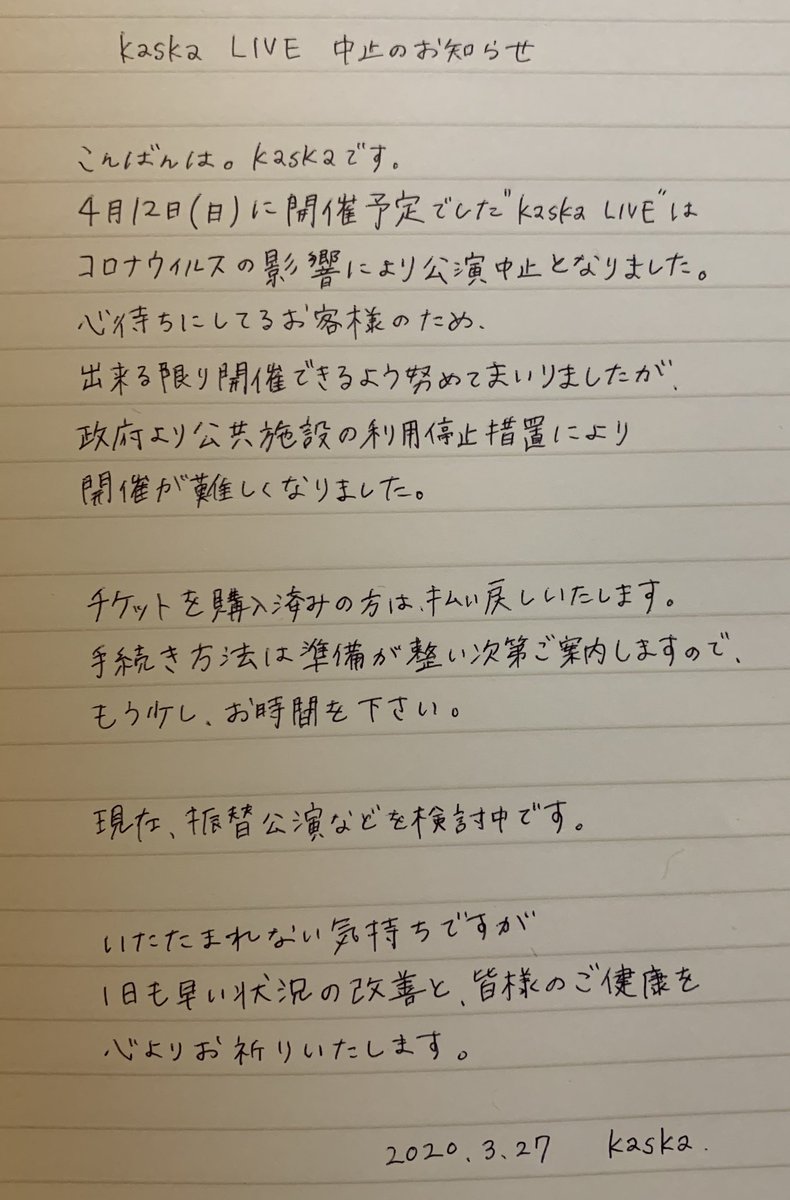 kaska LIVE 中止のお知らせ
こんばんは。kaskaです。
4月12日(日)に開催予定でした"kaska LIVE"は
コロナウイルスの影響により公演中止となりました。
心待ちにしてるお客様のため、
出来る限り開催できるよう努めてまいりましたが、
政府より公共施設の利用停止措置により
開催が難しくなりました。
チケットを購入済みの方は、払い戻しいたします。
手続き方法は準備が整い次第ご案内しますので、
もう少し、お時間を下さい。
現在、振替公演などを検討中です。
いたたまれない気持ちですが
1日も早い状況の改善と、皆様のご健康を
心よりお祈りいたします。
2020.3.27 kaska.